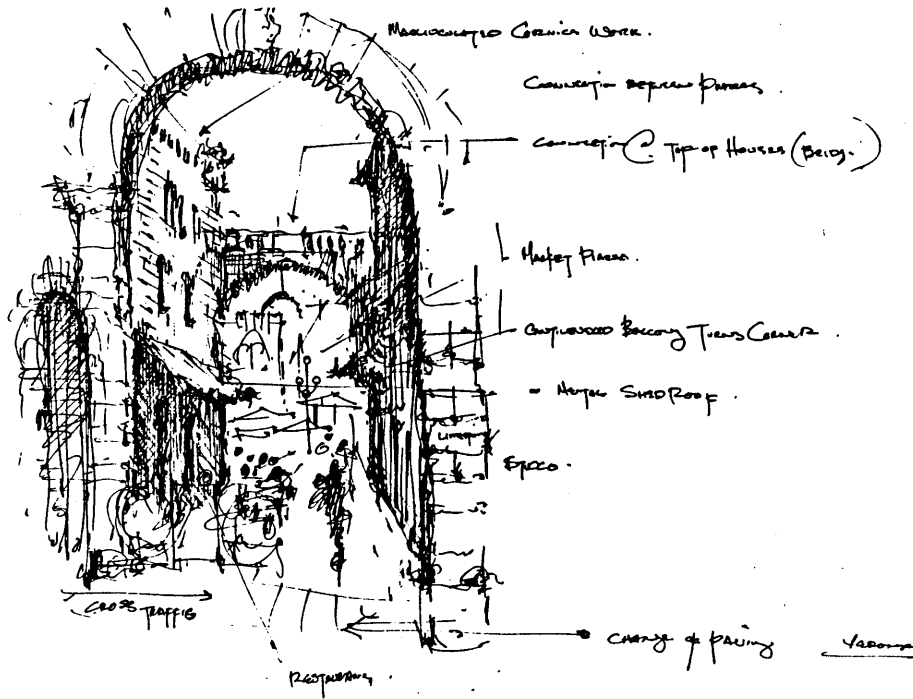 MACHICOLATED CORNICE WORK.
CONNECTION BETWEEN PIAZZAS
CONNECTION @ TOP OF HOUSES (BRIDG.)
MARKET PIAZZA.
CANTILEVERED BALCONY TURNS CORNER.
METAL SHED ROOF.
STUCCO.
CROSS TRAFFIC
CHANGE OF PAVING
RESTAURANT